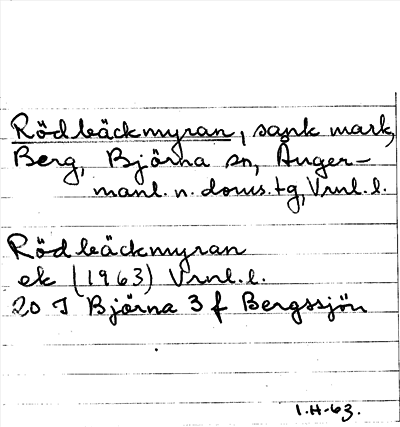 Rödbäckmyran, sank mark,
Berg, Björna sn, Ånger-
manl. n. doms. tg, Vrnl. l.
Rödbäckmyran
ek (1963) Vrnl. l.
20 I Björna 3 f Bergssjön
1.H-63.